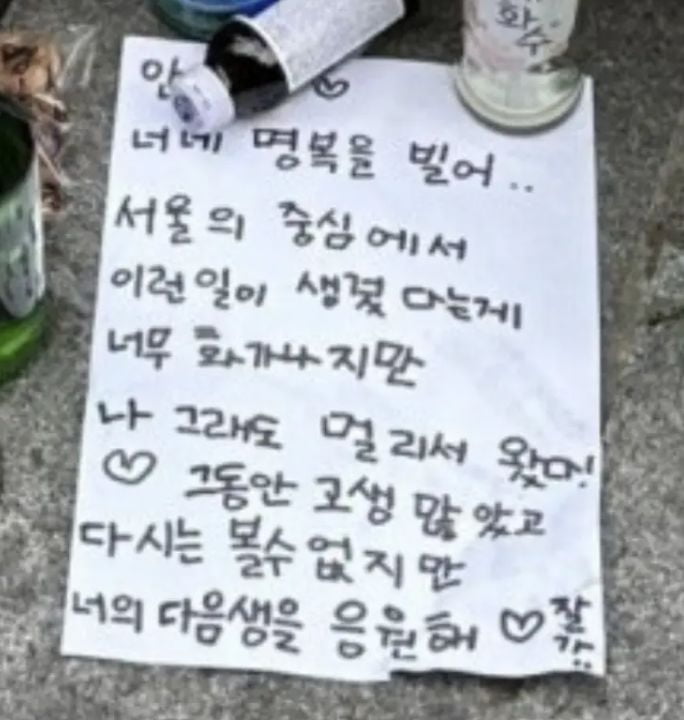 화수
안
너네 명복을 빌어..
서울의 중심에서
이런일이 생겼다는게
너무 화가나지만
나 그래도 멀리서 왔따!
♡ 그동안 고생 많았고
다시는 볼수없지만
너의 다음생을 응원해 ♡ 잘가..